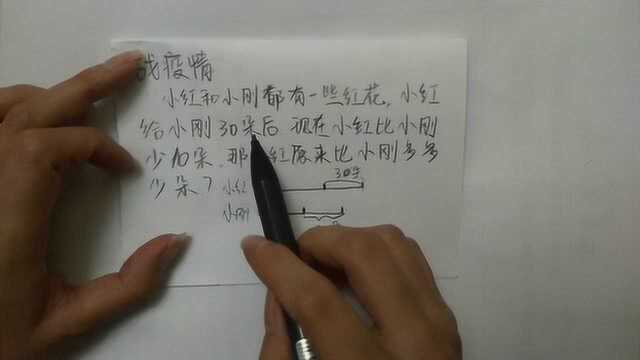 战疫情
小红和小刚都有一些红花,小红
给小刚30朵后 现在小红比小刚
少10朵,那 红原来比小刚多多
少朵?
30朵
小红
小刚